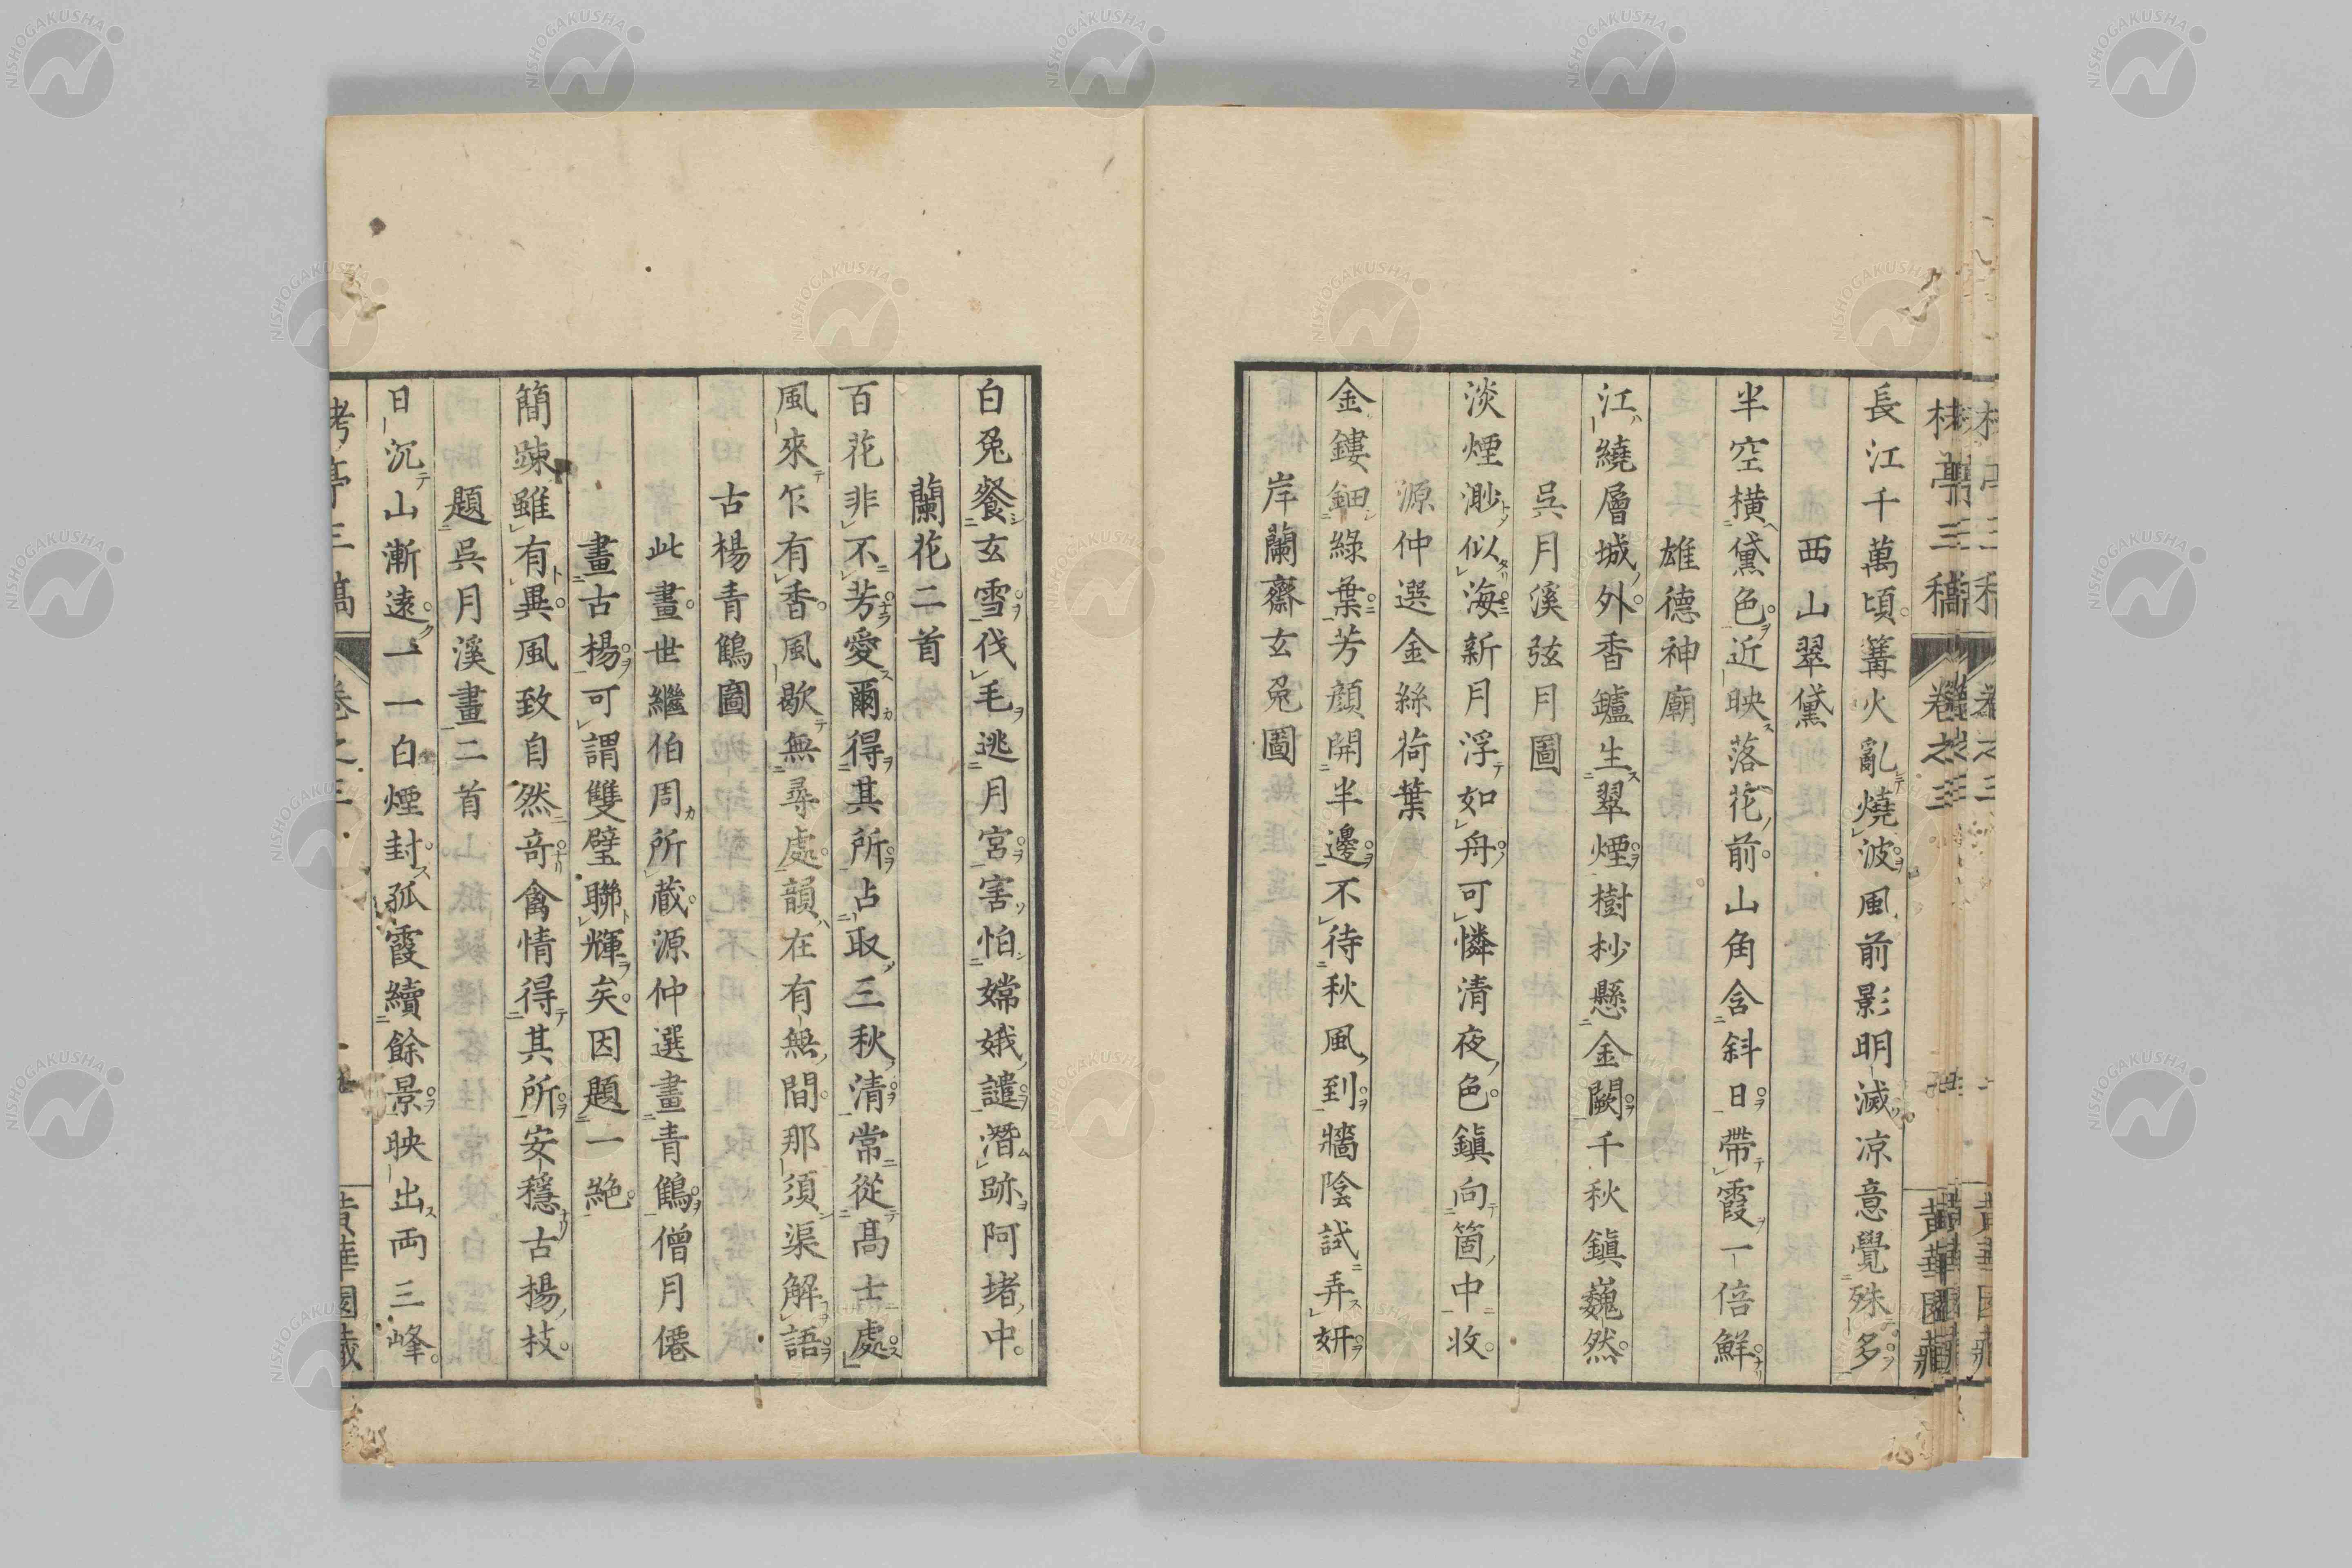 長江千萬頃篝火亂燒波風前影明滅凉意覺殊多
西山翠黛
半空横黛色近映落花前山角含斜日帶霞一倍鮮
雄德神廟
江繞層城外香鑪生翠煙樹杪懸金闕千秋鎮巍然
吳月溪弦月圖
淡煙渺似海新月浮如舟可憐清夜色鎮向箇中收
源仲選金絲荷葉
金鏤鈿綠葉芳顔開半邊不待秋風到牆陰試弄妍
岸蘭齋玄兔圖
白兔餐玄雪伐毛逃月宮害怕嫦娥譴潛跡阿堵中
蘭花二首
百花非不芳愛爾得其所占取三秋清常從高士處
風來乍有香風歇無尋處韻在有無間那須渠解語
古楊青鶴圖
此畫世繼伯周所蔵源仲選畫青鶴僧月僊
畫古楊可謂雙璧聯輝矣因題一絕
簡疎雖有異風致自然奇禽情得其所安穩古楊枝
題吳月溪畫二首
日沉山漸遠一一白煙封孤霞續餘景映出両三峰
卷之三
NISHOGAKUSHA